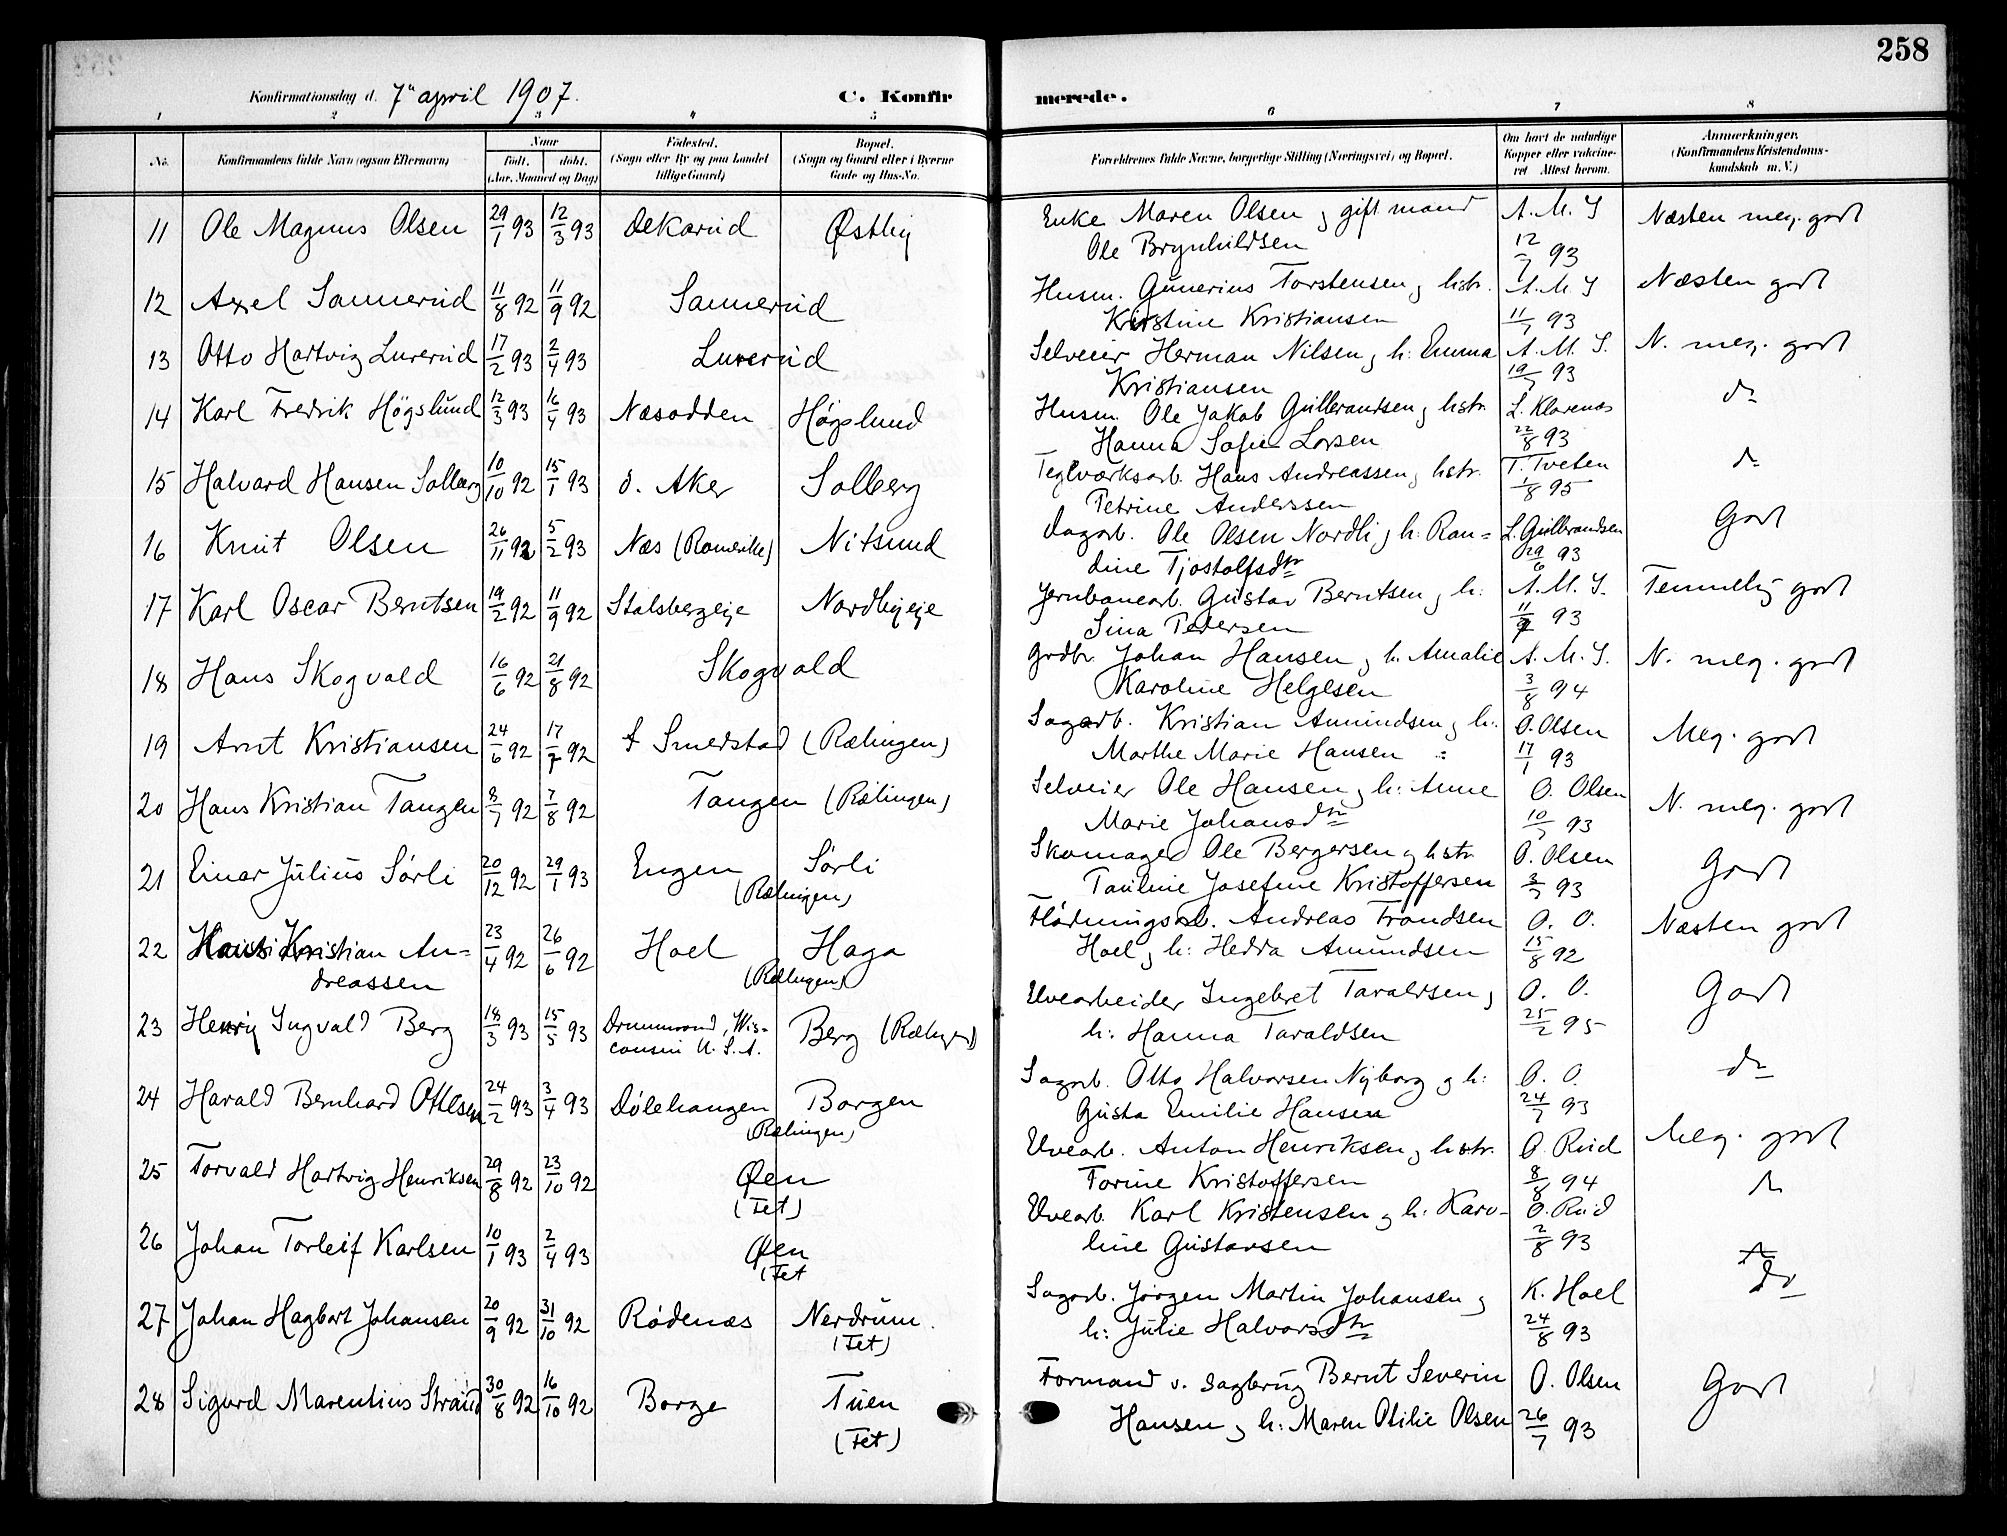 258
Konfirmationsdag d. 7de april 1907.
C. Konfirmerede.
1 2 3 4 5 6 7 8
No. Konfirmandens fulde Navn (ogsaa Efternavn)
Naar
født. døbt.
(Aar, Maaned og Dag)
Fødested.
(Sogn eller By og paa Landet
tillige Gaard)
Bopæl.
(Sogn og Gaard eller i Byerne
Gade og Hus-No.
Forældrenes fulde Navne, borgerlige Stilling (Næringsvei) og Bopæl.
Om havt de naturlige
Kopper eller vakcine-
ret Attest herom.
Anmærkninger.
(Konfirmandens Kristendoms-
kundskab m. V.)
11 Ole Magnus Olsen 29/1 93 12/3 93 Dekarud Østby Enke Maren Olsen g gift mand A. M. S Næsten meg. godt
Ole Brynhildsen 12/7 93
12 Axel Sannerud 11/8 92 11/9 92 Sannerud Husm. Gunerius Torstensen g hstr. A. M. S Næsten godt
Kirstine Kristiansen 11/7 93
13 Otto Hartvig Lurerud 17/2 93 2/4 93 Lurerud Selveier Herman Nilsen g h: Emma A. M. S. N. meg. godt
Kristiansen 19/7 93
14 Karl Fredrik Högslund 12/3 93 16/4 93 Næsodden Högslund Husm. Ole Jakob Gulbrandsen g hstr. L. Klarenæs do
Hanna Sofie Larsen 22/8 93
15 Halvard Hansen Solberg 10/10 92 15/1 93 Ø. Aker Solberg Teglværksarb. Hans Andreassen g hstr. T. Tveten do
Petrine Anderssen 1/8 95
16 Knut Olsen 26/11 92 5/2 93 Næs (Romerike) Nitsund Dagarb. Ole Olsen Nordli g h: Ran= L. Gulbrandsen Godt
dine Tjostolfsdtr 29/6 93
17 Karl Oscar Berntsen 19/2 92 11/9 92 Stalsbergeje Nordbyeje Jernbanearb. Gustav Berntsen g h: A. M. S. Temmelig godt
Sina Pedersen 93
18 Hans Skogvold 16/6 92 21/8 92 Skogvold Grdbr. Johan Hansen g h. Amalie A. M. S. N. meg. godt
Karoline Helgesen 3/8 94
19 Arnt Kristiansen 24/6 92 17/7 92 Smedstad (Rælingen) Sagarb. Kristian Amundsen g h: O. Olsen Meg. godt
Marthe Marie Hansen 17/1 93
20 Hans Kristian Tangen 8/7 92 7/8 92 Tangen (Rælingen) Selveier Ole Hansen g h: Anne O. Olsen N. meg. godt
Marie Johansdtr 10/7 93
21 Einar Julius Sörli 20/12 92 29/1 93 Engen Sörli Skomager Ole Bergersen g hstr O. Olsen Godt
(Rælingen) Pauline Josefine Kristoffersen 3/7 93
22 Kristian An= 23/4 92 26/6 92 Hoel Haga Flödningsarb. Andreas Trondsen O. O. Næsten godt
dreassen (Rælingen) Hoel g h: Hedda Amundsen 15/8 92
23 Henry Ingvald Berg 18/3 93 15/5 93 Drummond, Wis= Berg (Rælingen) Uvearbeider Ingebret Taraldsen g O. O. Godt
consin U. S. A. h: Hanna Taraldsen 25/2 95
24 Harald Bernhard Ottesen 24/2 93 3/4 93 Dölehaugen Borgen Sagarb. Otto Halvorsen Nyborg g h: O. O. do
(Rælingen) Gusta Emilie Hansen 24/7 93
25 Torvald Hartvig Henriksen 29/8 92 23/10 92 Øen Uvearb. Anton Henriksen g hstr. O. Rud Meg. godt
(Fet) Torine Kristoffersen 8/8 94
26 Johan Torleif Karlsen 10/1 93 2/4 93 Øen Uvearb. Karl Kristensen g h: Karo- O. Rud do
(Fet line Gustavsen 2/8 93
27 Johan Hagbart Johansen 20/9 92 31/10 92 Rödenæs Nerdrum. Sagarb. Jörgen Martin Johansen g K. Hoel do
(Fet) h: Julie Halvorsdtr 24/8 93
28 Sigurd Marentius Strand 30/8 92 16/10 92 Borge Tuen Formand v. Sagbrug Bernt Severin O. Olsen Godt
(Fet) Hansen g h: Maren Otilie Olsen 26/7 93